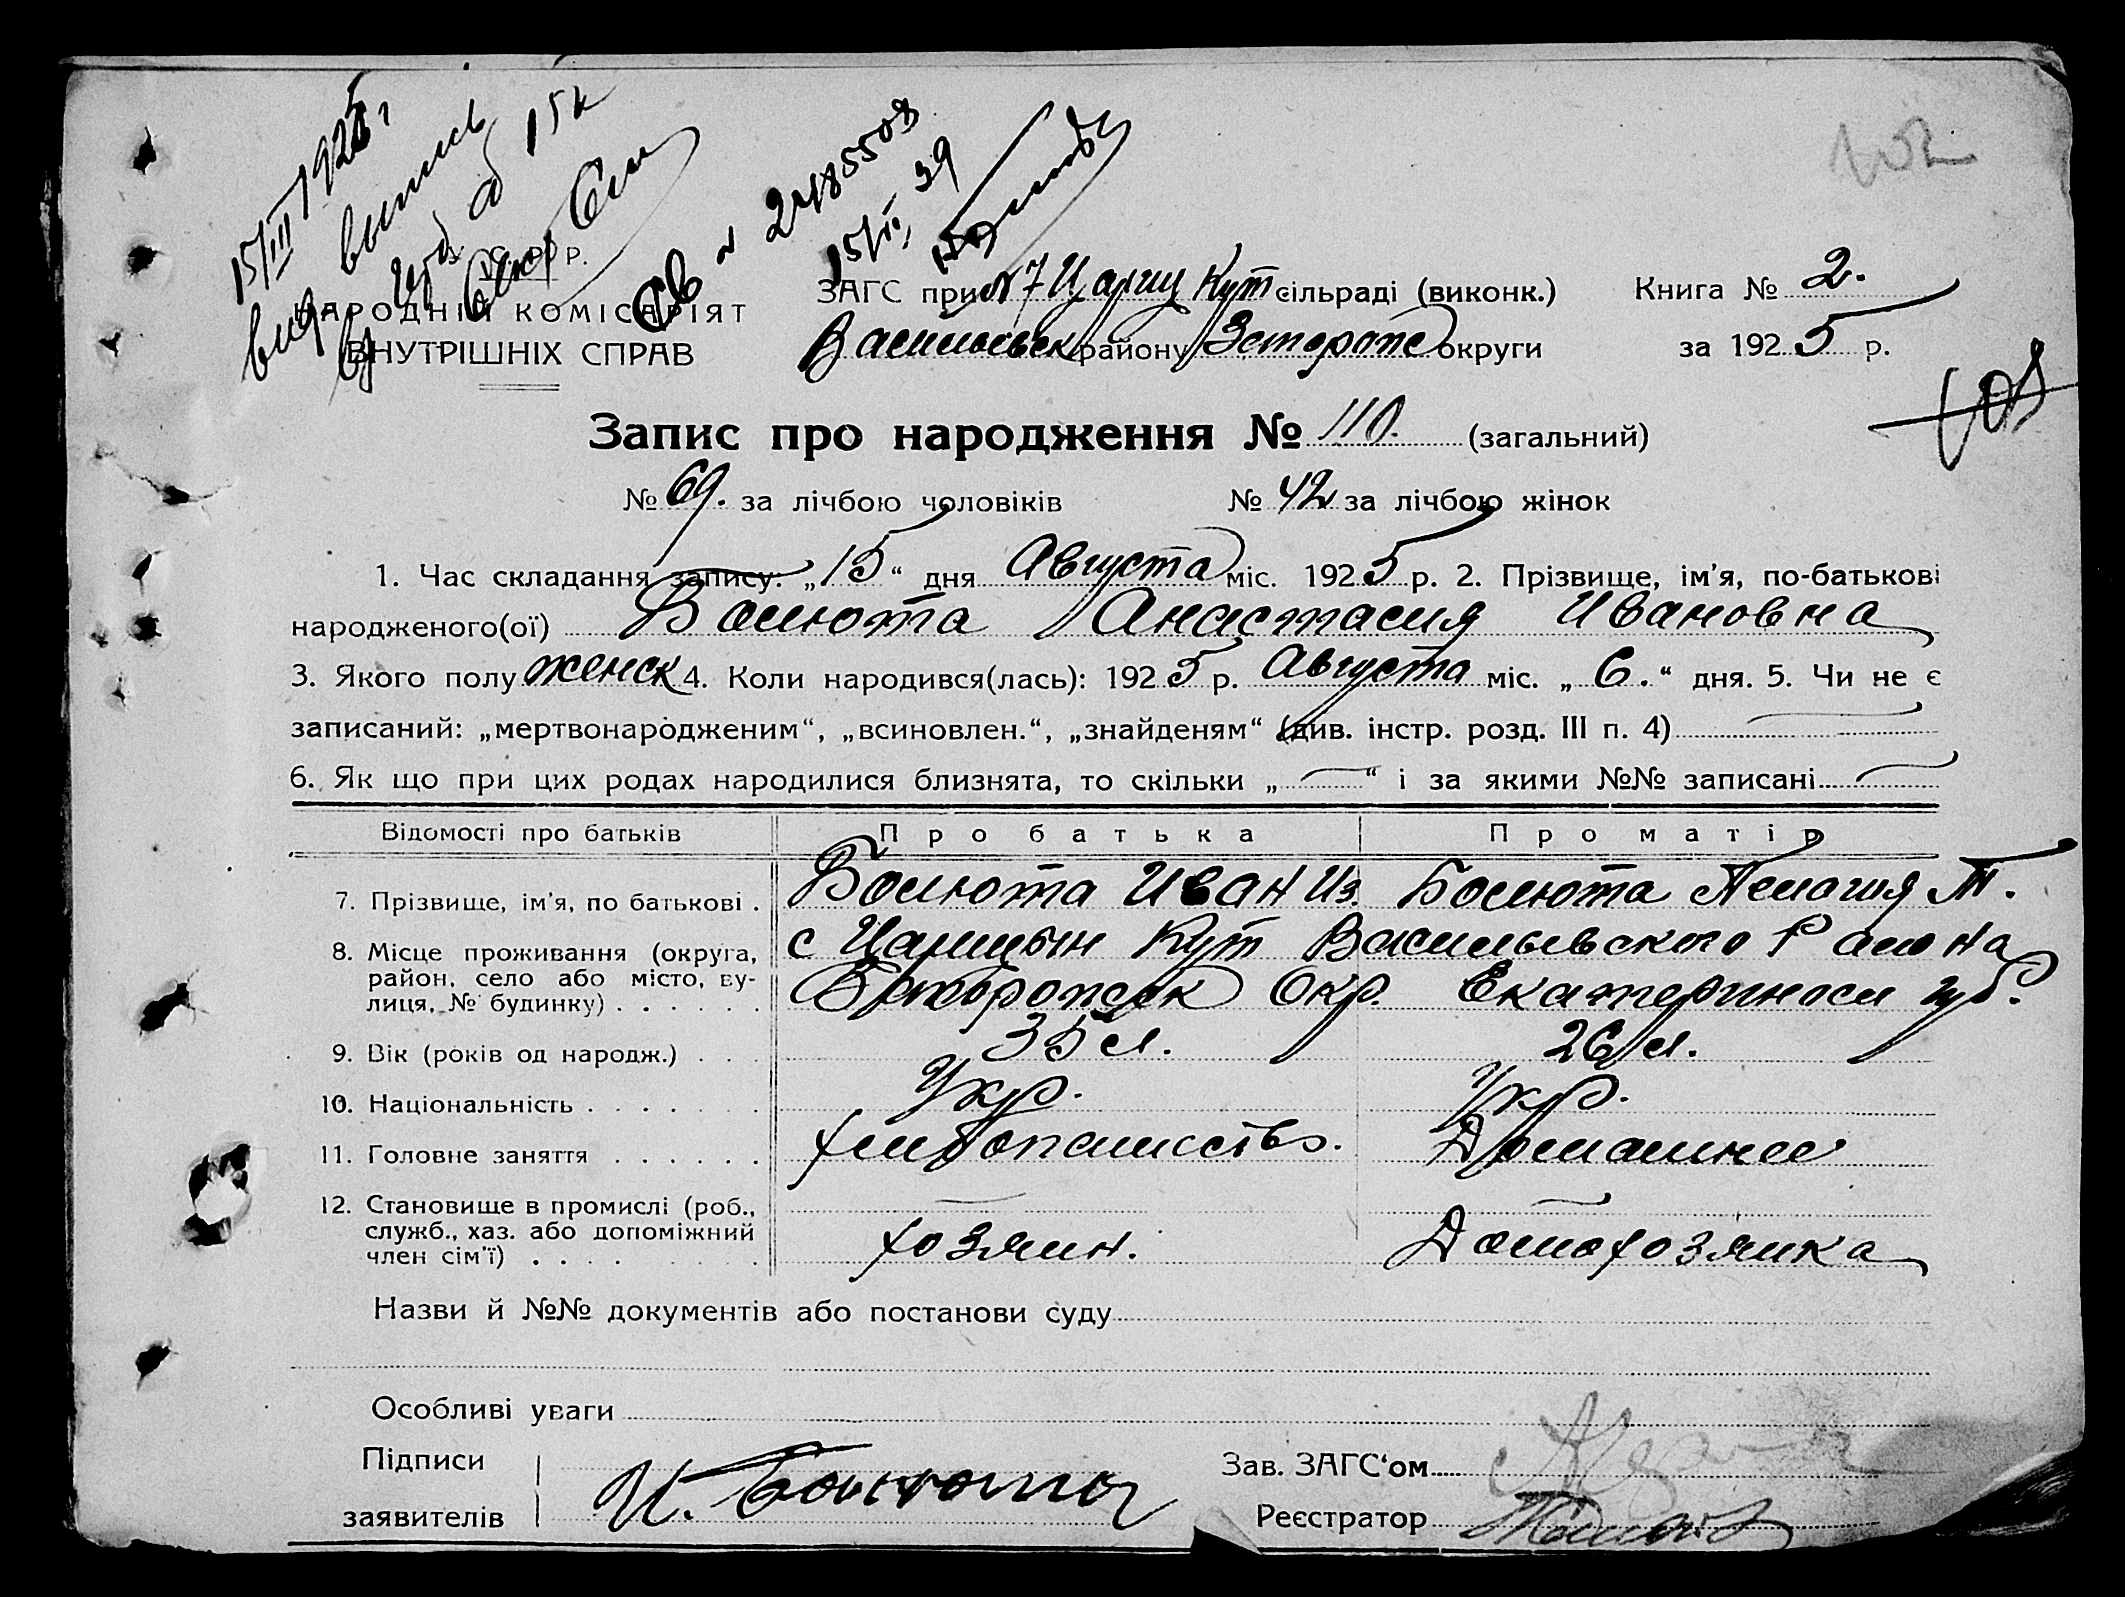 15/III 1925 г
выпись
15 к
№ 2485508
15/II, 39
102
У.С.Р.Р.
НАРОДНІЙ КОМІСАРІЯТ
ВНУТРІШНІХ СПРАВ
ЗАГС при №7 Цариц Кут сільраді (виконк.) Книга № 2.
Васильевск району Запорож округи за 1925 р.
Запис про народження № 110. (загальний)
№ 69. за лічбою чоловіків № 42 за лічбою жінок
1. Час складання запису: „15“ дня Августа міс. 1925 р. 2. Прізвище, ім’я, по-батькові
народженого(ої) Болюта Анастасия Ивановна
3. Якого полу женск 4. Коли народився(лась): 1925 р. Августа міс. „6.“ дня. 5. Чи не є
записаний: „мертвонародженим“, „всиновлен.“, „знайденям“ (див. інстр. розд. III п. 4)
6. Як що при цих родах народилися близнята, то скільки „—“ і за якими №№ записані —
Відомості про батьків Про батька Про матір
7. Прізвище, ім’я, по батькові . Болюта Иван Из. Болюта Пелагия Т.
8. Місце проживання (округа, с Царицын Кут Васильевского Района
район, село або місто, ву-
лиця, № будинку) . . . . . . Запорожск Окр. Екатериносл губ.
9. Вік (років од народж.) . . . 35 л. 26 л.
10. Національність . . . . . . . Укр. Укр.
11. Головне заняття . . . . . . хлебопашество. Домашнее
12. Становище в промислі (роб.,
служб., хаз. або допоміжний
член сім’ї) . . . . . . . . хозяин. Домохозяйка
Назви й №№ документів або постанови суду
Особливі уваги
Підписи
заявителів И. Болюта
Зав. ЗАГС‘ом
Реєстратор